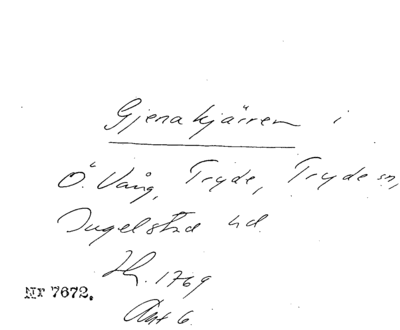 Gjenakjärren i
Ö. Vång, Tryde, Tryde sn,
Ingelstad hd.
1769
Nr 7672.
Akt 6